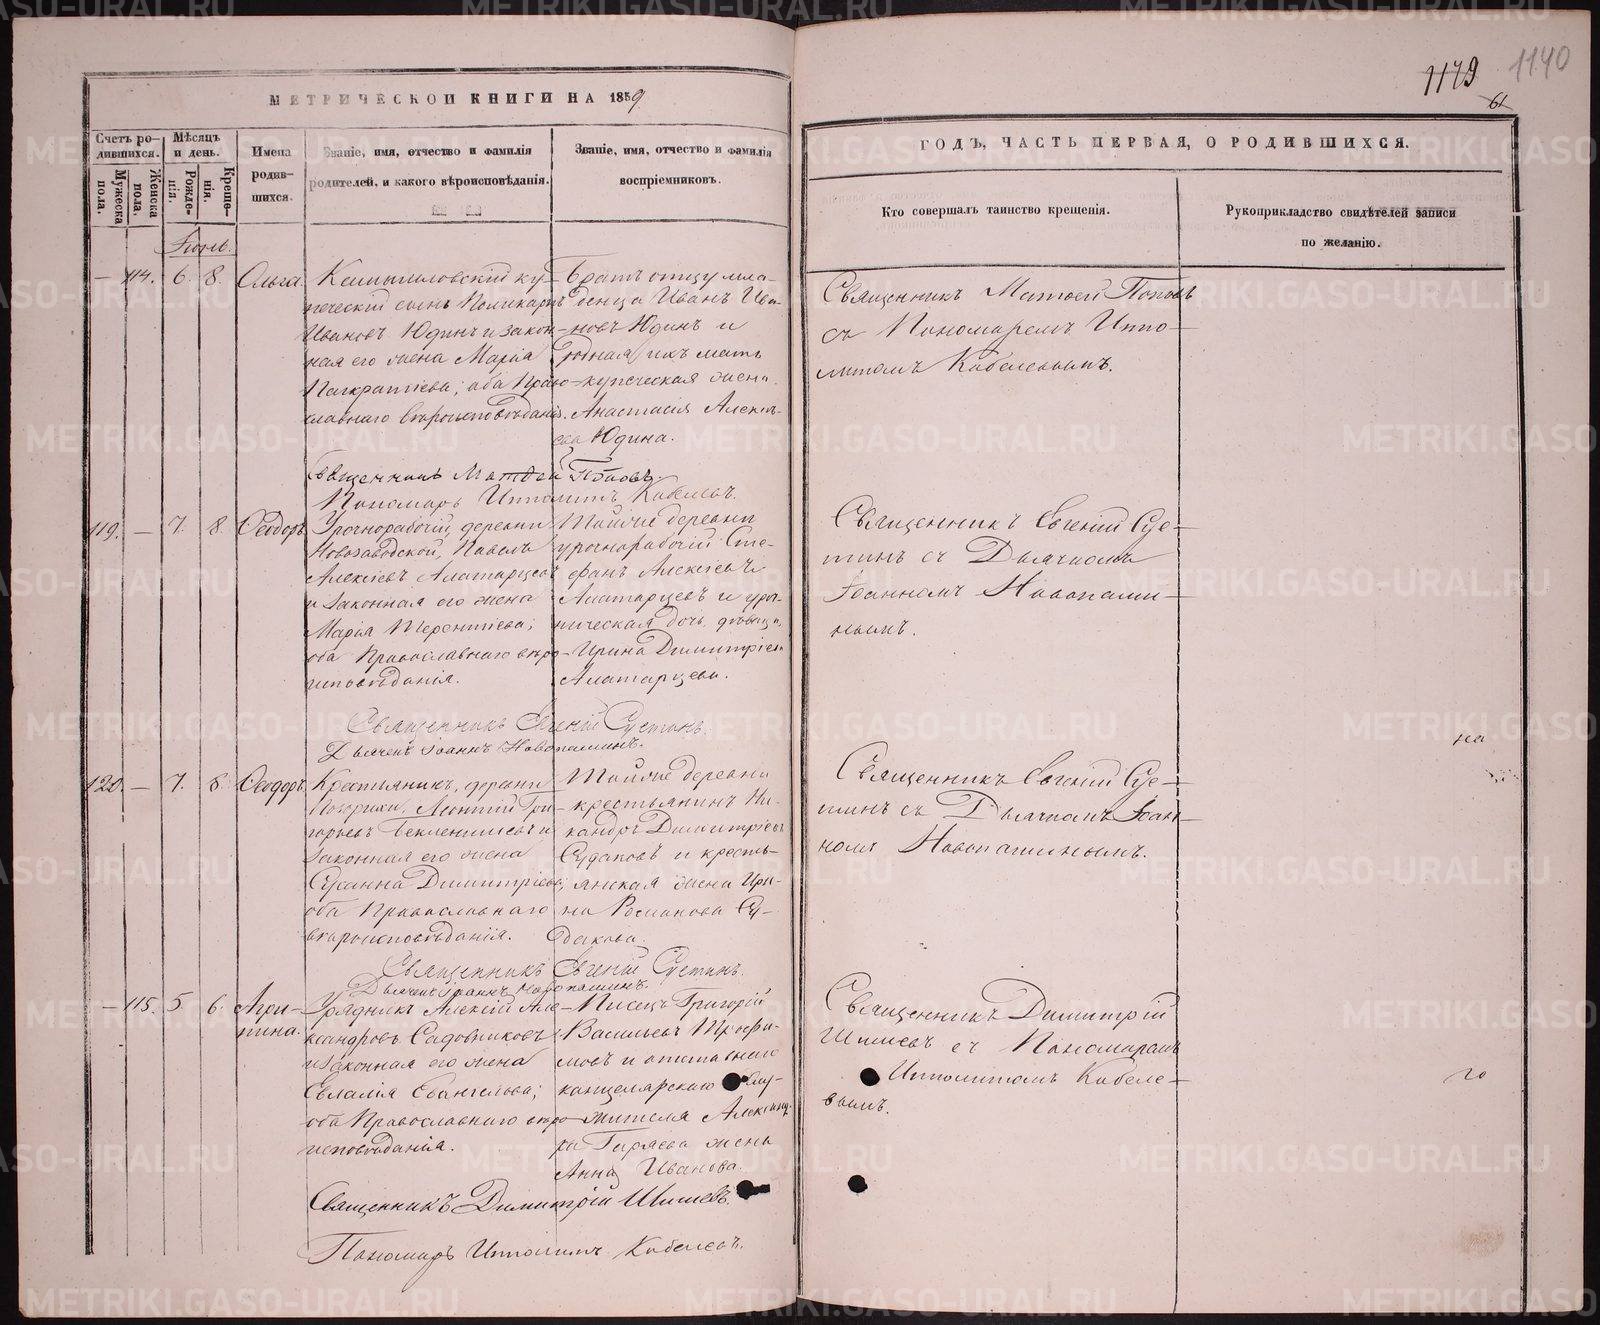 МЕТРИЧЕСКОЙ КНИГИ НА 1859
1179 1140
61
ГОДЪ, ЧАСТЬ ПЕРВАЯ, О РОДИВШИХСЯ.
Счетъ ро-
дившихся.
Мужеска
пола.
Женска
пола.
Мѣсяцъ
и день.
Рожде-
нія.
Креще-
нія.
Имена
родив-
шихся.
Званіе, имя, отчество и фамилія
родителей, и какого вѣроисповѣданія.
Званіе, имя, отчество и фамилія
воспріемниковъ.
Кто совершалъ таинство крещенія.
Рукоприкладство свидѣтелей записи
по желанію.
Іюль.
— 114. 6. 8. Ольга.
купеческій сынъ Поликарпъ
Ивановъ Юдинъ и закон-
ная его жена Марія
Панкратіева; оба Право-
славнаго вѣроисповѣданія.
Братъ отцу мла-
денца Иванъ Ива-
новъ Юдинъ и
родная ихъ мать
купеческая жена
Анастасія Алексѣ-
ева Юдина.
Священникъ Матѳей Поповъ
съ Пономаремъ Иппо-
литомъ Кобелевымъ.
Священникъ Матѳей Поповъ
Пономарь Ипполитъ Кобелевъ.
119. — 7. 8. Ѳеодоръ.
Урочнорабочій деревни
Новозаводской, Павелъ
Алексіевъ Алатарцевъ
и законная его жена
Марія Терентіева;
оба Православнаго вѣро-
исповѣданія.
Тойже деревни
урочнорабочій Сте-
фанъ Алексіевъ
Алатарцевъ и уроч-
ническая дочь дѣвица
Ирина Димитріева
Алатарцева.
Священникъ Евгеній Сус-
тинъ съ Дьячкомъ
Іоанномъ Новопаши-
нымъ.
Священникъ Евгеній Сустинъ
Дьячекъ Іоаннъ Новопашинъ.
120. — 7. 8. Ѳеодоръ.
Крестьянинъ, деревни
Леонтій Гри-
горьевъ Бекленищевъ и
законная его жена
Сусанна Димитріева;
оба Православнаго
вѣроисповѣданія.
Тойже деревни
крестьянинъ Ни-
кандръ Димитріевъ
Судаковъ и кресть-
янская жена Ири-
на Романова Су-
дакова.
Священникъ Евгеній Сус-
тинъ съ Дьячкомъ Іоан-
номъ Новопашинымъ.
на
Священникъ Евгеній Сустинъ.
Дьячекъ Іоаннъ Новопашинъ.
— 115. 5. 6. Агри-
пина.
Урядникъ Алексій Але-
ксандровъ Садовниковъ
и законная его жена
Евлалія Евангелова;
оба Православнаго вѣро-
исповѣданія.
Писецъ Григорій
Васильевъ Трофи-
мовъ и отставнаго
канцелярскаго слу-
жителя Александ-
ра Гиляева жена
Анна Иванова.
Священникъ Димитрій
Шишевъ съ Пономаремъ
Ипполитомъ Кобеле-
вымъ.
го
Священникъ Димитрій Шишевъ.
Пономарь Ипполитъ Кобелевъ.
METRIKI.GASO-URAL.RU